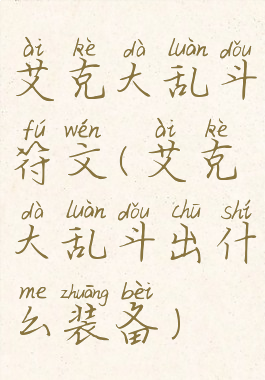 ài kè dà luàn dǒu
艾克大乱斗
fú wén ài kè
符文(艾克
dà luàn dǒu chū shí
大乱斗出什
me zhuāng bèi
么装备)